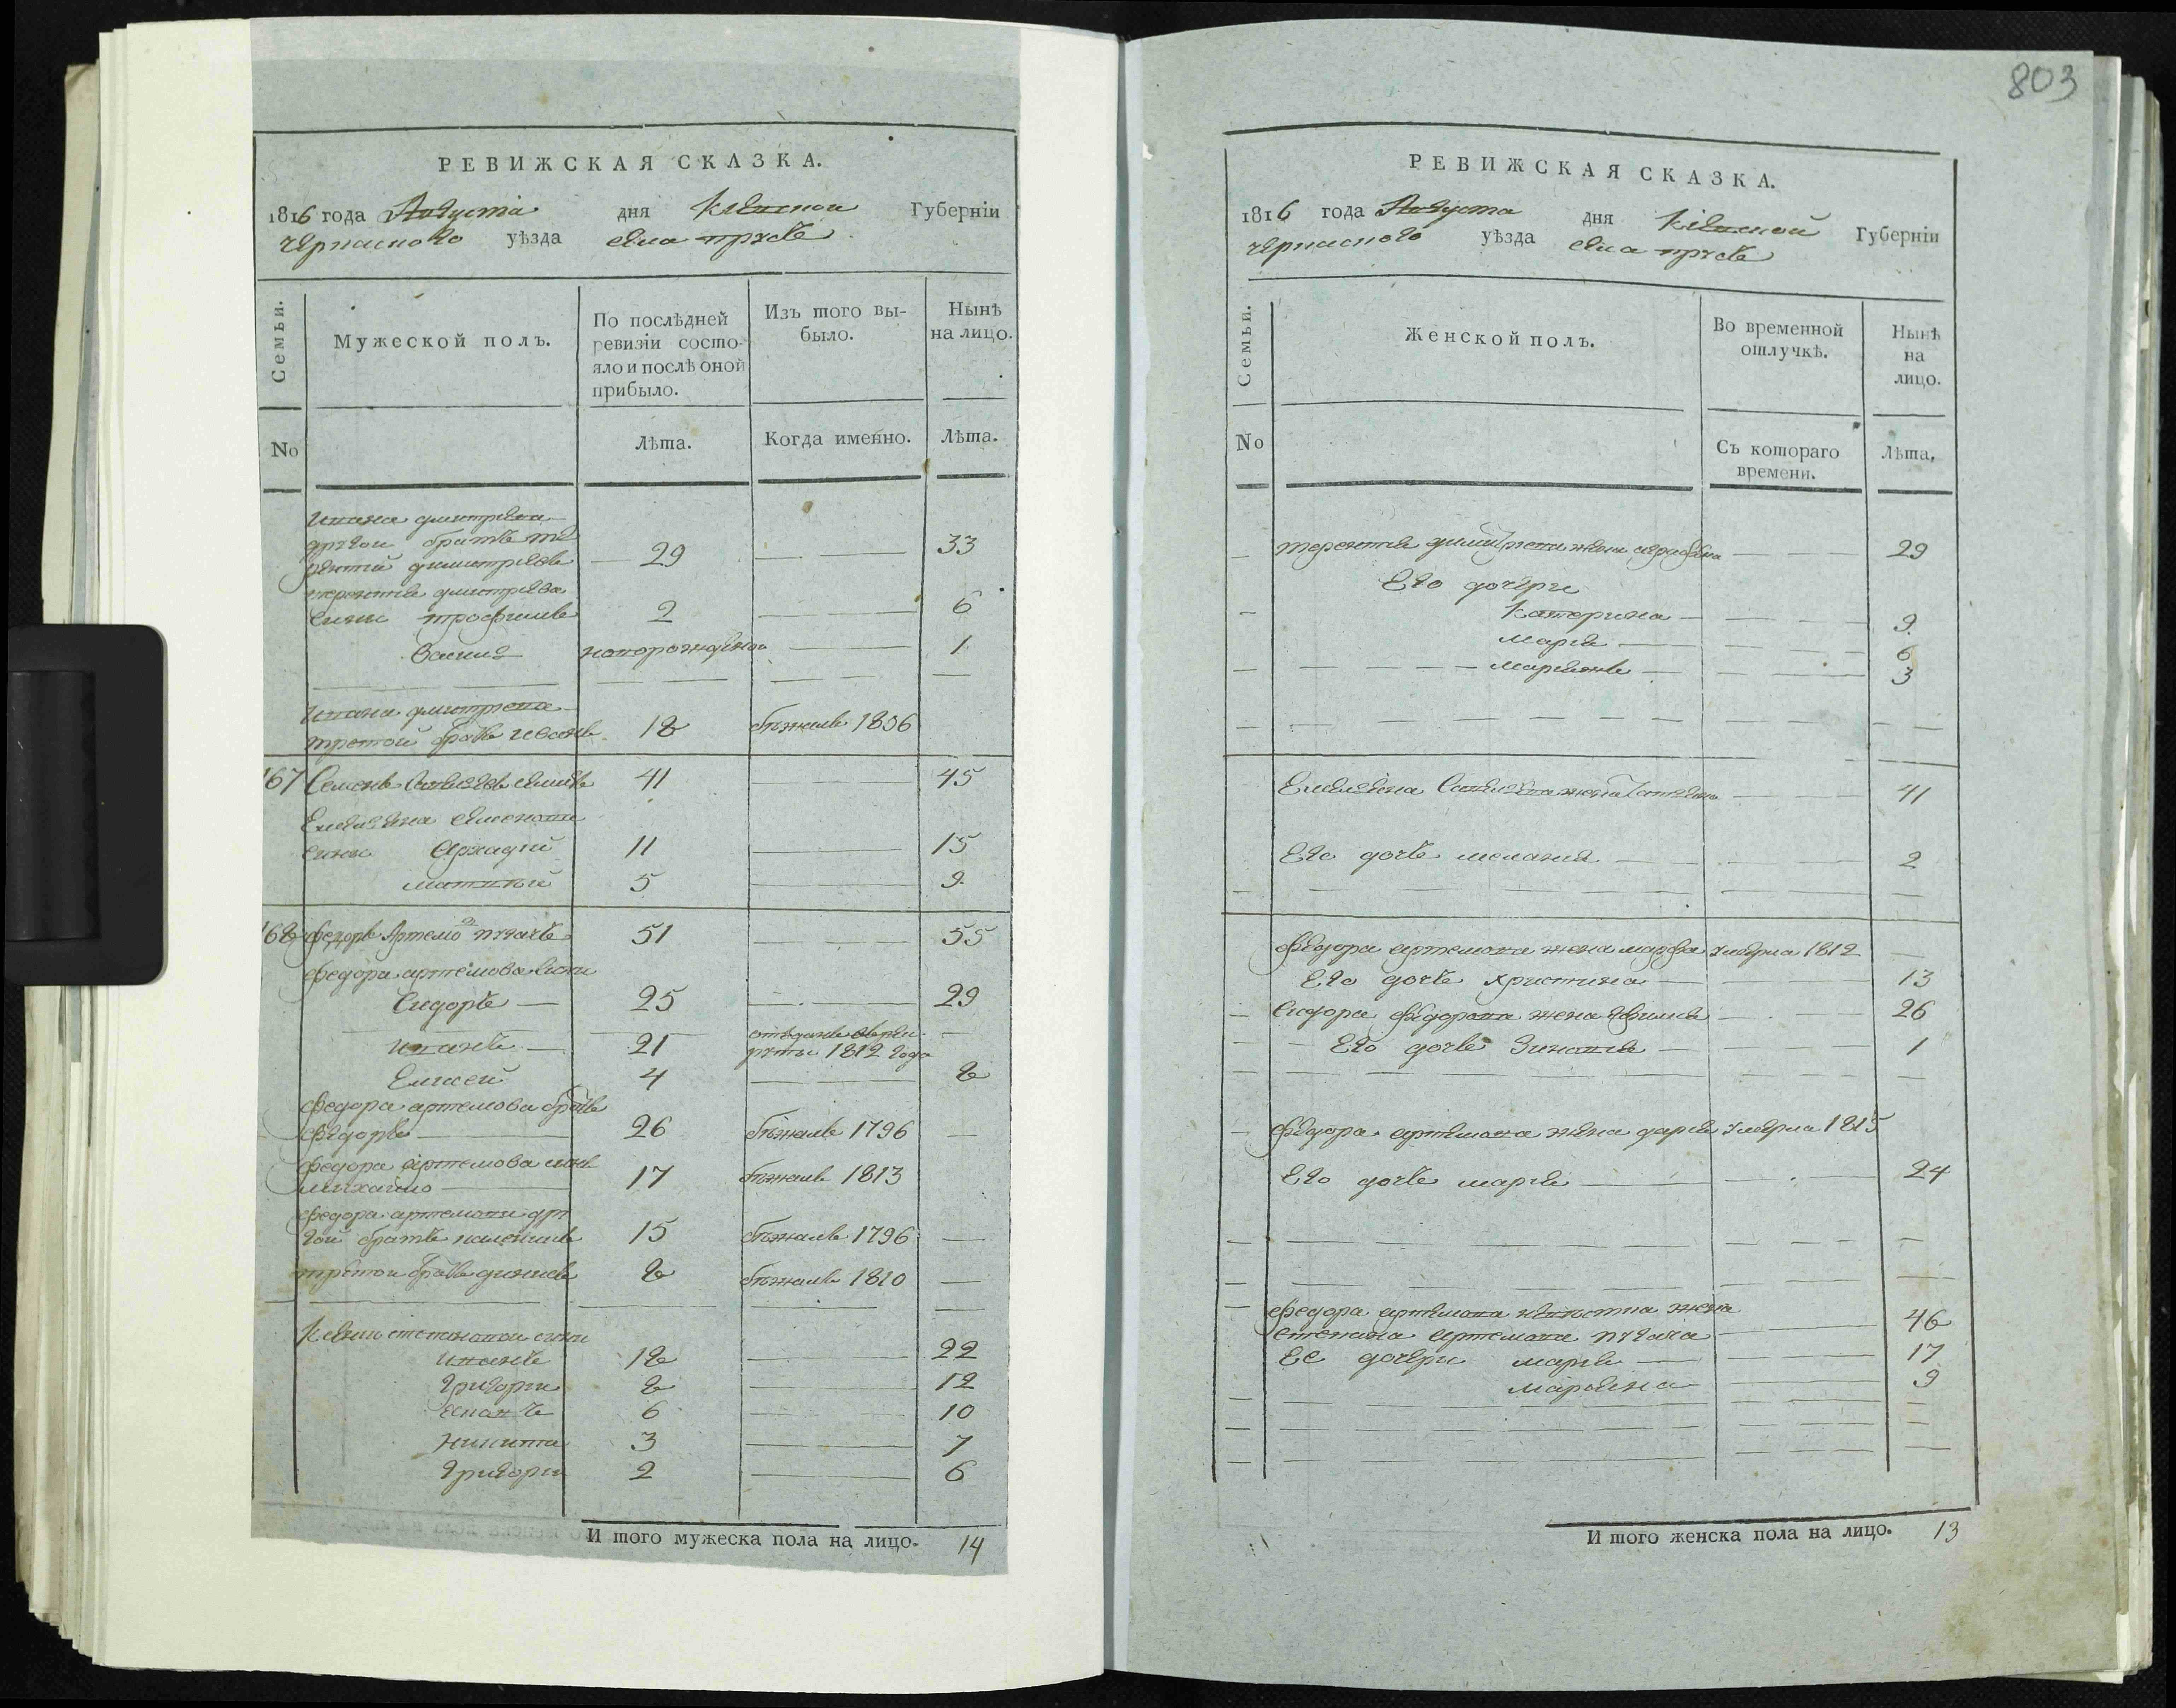 803
РЕВИЖСКАЯ СКАЗКА.
1816 года Августа дня Кіевской Губерніи
черкаского уѣзда села прусъ
Семьи.
Мужеской полъ.
По послѣдней
ревизіи состо-
яло и послѣ оной
прибыло.
Изъ того вы-
было.
Нынѣ
на лицо.
No
Лѣта.
Когда именно.
Лѣта.
ивана дмитрева
другой братъ те
рентій димитріевъ 29 33
терентія дмитрева
сыны трофимъ 2 6
васил новорожденой 1
ивана дмитрева
третой братъ 18 бѣжалъ 1806
167 Семенъ 41 45
Емельяна семенова
сыны Аркадій 11 15
матвій 5 9
168 федоръ Артемов пугачъ 51 55
федора артемова сыны
Сидоръ 25 29
иванъ 21 отъданъ в рек
руты 1812 года
Елисей 4 8
федора артемова братъ
федоръ 26 бѣжалъ 1796
федора артемова сынъ
михайло 17 бѣжалъ 1813
федора артемова дру
гой братъ 15 бѣжалъ 1796
третой братъ денисъ 8 бѣжалъ 1810
степановы сыны
иванъ 18 22
григори 8 12
6 10
никита 3 7
григори 2 6
И того мужеска пола на лицо. 14
РЕВИЖСКАЯ СКАЗКА.
1816 года Августа дня Кіевской Губерніи
черкаского уѣзда села прусъ
Семьи.
Женской полъ.
Во временной
отлучкѣ.
Нынѣ
на
лицо.
No
Съ котораго
времени.
Лѣта.
терентія жена 29
Его дочери
Катерина 9
марія 6
маріянъ 3
Емеліяна жена 41
Его дочъ меланія 2
федора артемова жена марфа умерла 1812
Его дочъ христина 13
Сидора федорова жена 26
Его дочъ Зиновія 1
федора артемова жена дарія умерла 1815
Его дочъ марія 24
федора артемова невѣстка жена
степана артемова пугача 46
Ее дочери марія 17
маріяна 9
И того женска пола на лицо. 13